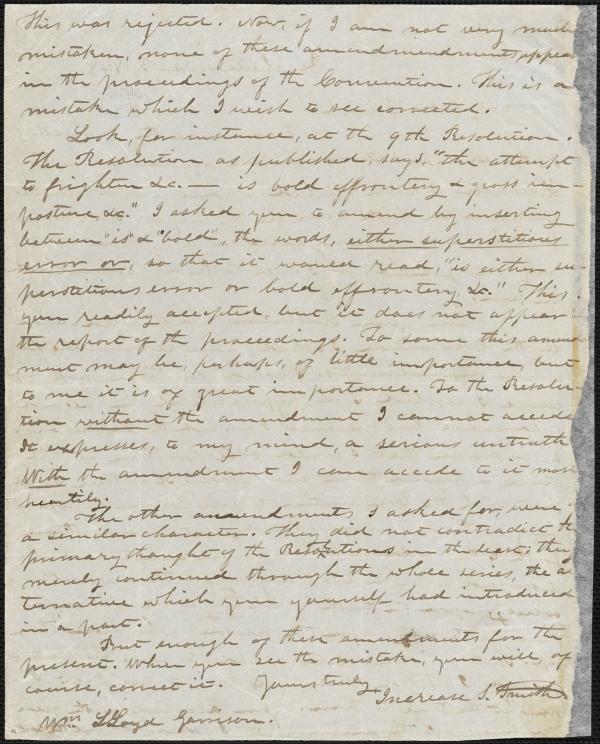 This was rejected. Now, if I am not very much
mistaken, none of these amendmendments appear
in the proceedings of the Convention. This is a
mistake which I wish to see corrected.
Look, for instance, at the 9th Resolution.
The Resolution as published, says, "the attempt
to frighten &c. — is bold effrontery & gross im-
posture, &c." I asked you to amend by inserting
between "is" & "bold", the words, either superstitious
error or, so that it would read, "is either su-
perstitious error or bold effrontery &c." This
you readily accepted, but it does not appear
the report of the proceedings. To some this amend
ment may be, perhaps, of little importance, but
to me it is of great importance. To the Resolu-
tion without the amendment I cannot accede
It expresses, to my mind, a serious untruth
With the amendment I can accede to it most
heartily.
The other amendments I asked for, were
a similar character. They did not contradict the
primary thought of the Resolutions in the least; they
merely continued through the whole series, the al
ternative which you yourself had introduced
in a part.
But enough of these amendments for the
present. When you see the mistake, you will, of
course, correct it. Yours truly,
Increase S. Smith
Wm. LLoyd Garrison.